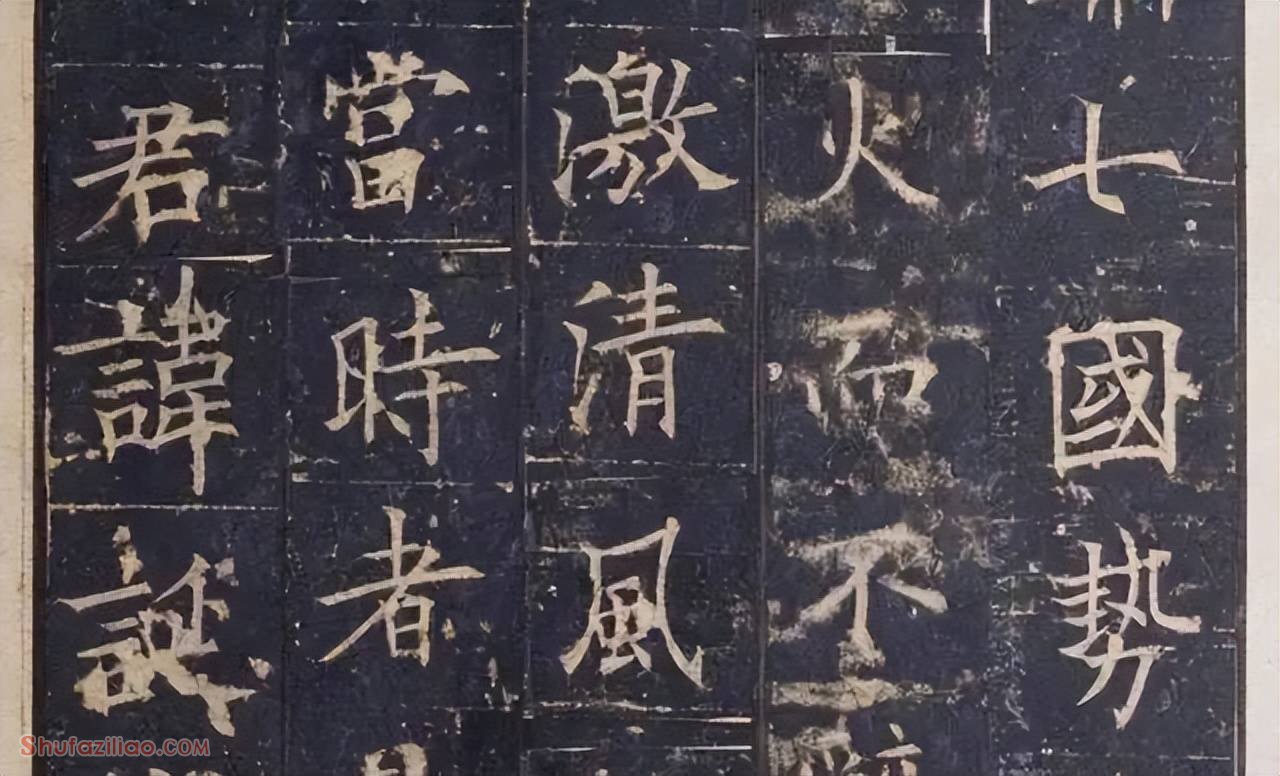 七國勢
火而不
激清風
當時者
君諱誕
SHUFAZILIAO.COM